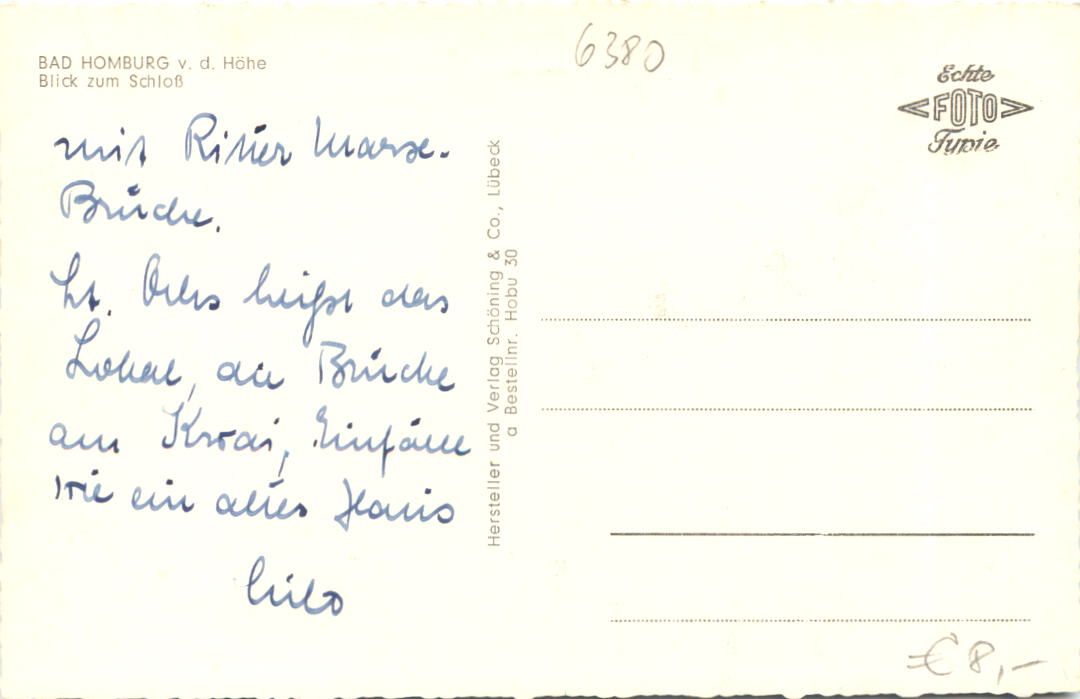 BAD HOMBURG v. d. Höhe
Blick zum Schloß
6380
Echte
FOTO
Typie
mit Ritter Marxe-
Brücke.
Lt. heißt das
Lokal, die Brücke
am Kwai, Einfälle
wie ein altes Haus
Hersteller und Verlag Schöning & Co., Lübeck
a Bestellnr. Hobu 30
€ 8,-